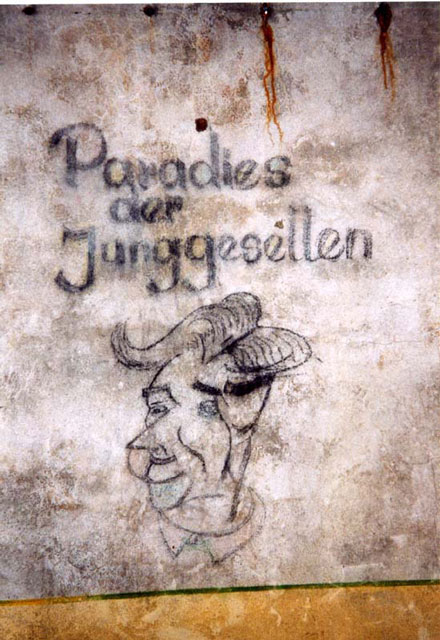 Paradies
der
Junggesellen